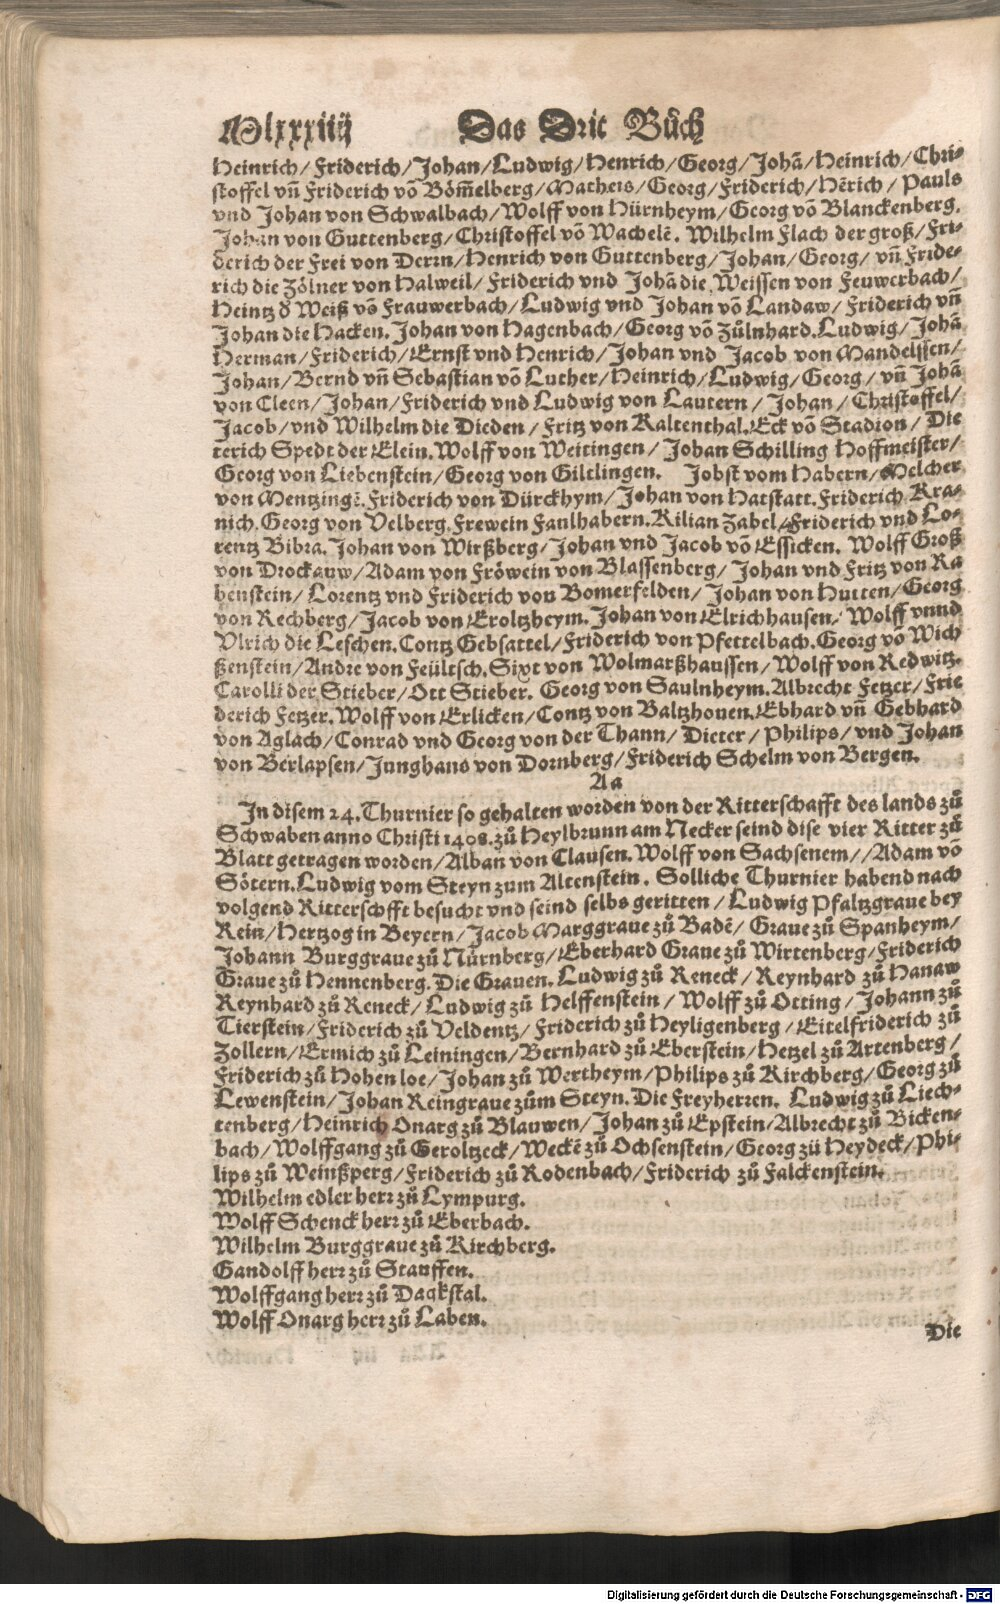 Mlxxxiiij Das Drit Bůch
Heinrich/ Friderich/ Johan/ Ludwig/ Henrich/ Georg/ Johã/ Heinrich/ Chri-
stoffel vñ Friderich võ Böm̃elberg/ Matheis/ Georg/ Friderich/ Hẽrich/ Pauls
vnd Johan von Schwalbach/ Wolff von Hürnheym/ Georg võ Blanckenberg.
Johan von Guttenberg/ Christoffel võ Wachelẽ. Wilhelm Flach der groß/ Fri-
derich der Frei von Derrn/ Henrich von Guttenberg/ Johan/ Georg/ vñ Fride-
rich die Zölner von Halweil/ Friderich vnd Johã die Weissen von Feuwerbach/
Heintz d Weiß võ Frauwerbach/ Ludwig vnd Johan võ Landaw/ Friderich vñ
Johan die Hacken. Johan von Hagenbach/ Georg võ Zůlnhard. Ludwig/ Johã
Herman/ Friderich/ Ernst vnd Henrich/ Johan vnd Jacob von Mandelssen/
Johan/ Bernd vñ Sebastian võ Luther/ Heinrich/ Ludwig/ Georg/ vñ Johã
von Cleen/ Johan/ Friderich vnd Ludwig von Lautern/ Johan/ Christoffel/
Jacob/ vnd Wilhelm die Dieden/ Fritz von Kaltenthal. Eck võ Stadion/ Die
terich Spedt der Elein. Wolff von Weitingen/ Johan Schilling Hoffmeister/
Georg von Liebenstein/ Georg von Giltlingen. Jobst vom Habern/ Melcher
von Mentzingẽ. Friderich von Dürckhym/ Johan von Hatstatt. Friderich Kra-
nich. Georg von Velberg. Frewein Faulhabern. Kilian Zabel/ Friderich vnd Lo-
rentz Bibra. Johan von Wirßberg/ Johan vnd Jacob võ Essicken. Wolff Groß
von Drockauw/ Adam von Fröwein von Blassenberg/ Johan vnd Fritz von Ra
benstein/ Lorentz vnd Friderich von Bomerfelden/ Johan von Hutten/ Georg
von Rechberg/ Jacob von Eroltzheym. Johan von Elrichhausen/ Wolff vnnd
Vlrich die Leschen. Contz Gebsattel/ Friderich von Pfettelbach. Georg võ Wich
ßenstein/ Andre von Feültsch. Sixt von Wolmarßhaussen/ Wolff von Redwitz.
Carolli der Stieber/ Ott Stieber. Georg von Saulnheym. Albrecht Fetzer/ Frie
derich Fetzer. Wolff von Erlicken/ Contz von Baltzhouen. Ebhard vñ Gebhard
von Aglach/ Conrad vnd Georg von der Thann/ Dieter/ Philips/ vnd Johan
von Berlapsen/ Junghans von Dornberg/ Friderich Schelm von Bergen.
Aa
In disem 24. Thurnier so gehalten worden von der Ritterschafft des lands zů
Schwaben anno Christi 1408. zů Heylbrunn am Necker seind dise vier Ritter zů
Blatt getragen worden/ Alban von Clausen. Wolff von Sachsenem// Adam võ
Sötern. Ludwig vom Steyn zum Altenstein. Solliche Thurnier habend nach
volgend Ritterschfft besucht vnd seind selbs geritten/ Ludwig Pfaltzgraue bey
Rein/ Hertzog in Beyern/ Jacob Marggraue zů Badẽ/ Graue zů Spanheym/
Johann Burggraue zů Nůrnberg/ Eberhard Graue zů Wirtenberg/ Friderich
Graue zů Hennenberg. Die Grauen. Ludwig zů Reneck/ Reynhard zů Hanaw
Reynhard zů Reneck/ Ludwig zů Helffenstein/ Wolff zů Otting/ Johann zů
Tierstein/ Friderich zů Veldentz/ Friderich zů Heyligenberg/ Eitelfriderich zů
Zollern/ Ermich zů Leiningen/ Bernhard zů Eberstein/ Hetzel zů Artenberg/
Friderich zů Hohen loe/ Johan zů Wertheym/ Philips zů Kirchberg/ Georg zů
Lewenstein/ Johan Reingraue zům Steyn. Die Freyherren. Ludwig zů Liech-
tenberg/ Heinrich Onarg zů Blauwen/ Johan zů Epstein/ Albrecht zů Bicken-
bach/ Wolffgang zů Geroltzeck/ Weckẽ zů Ochsenstein/ Georg zü Heydeck/ Phi-
lips zů Weinßperg/ Friderich zů Rodenbach/ Friderich zů Falckenstein.
Wilhelm edler herr zů Lympurg.
Wolff Schenck herr zů Eberbach.
Wilhelm Burggraue zů Kirchberg.
Gandolff herr zů Stauffen.
Wolffgang herr zů Daqkstal.
Wolff Onarg herr zů Laben.
Die
Digitalisierung gefördert durch die Deutsche Forschungsgemeinschaft - DFG